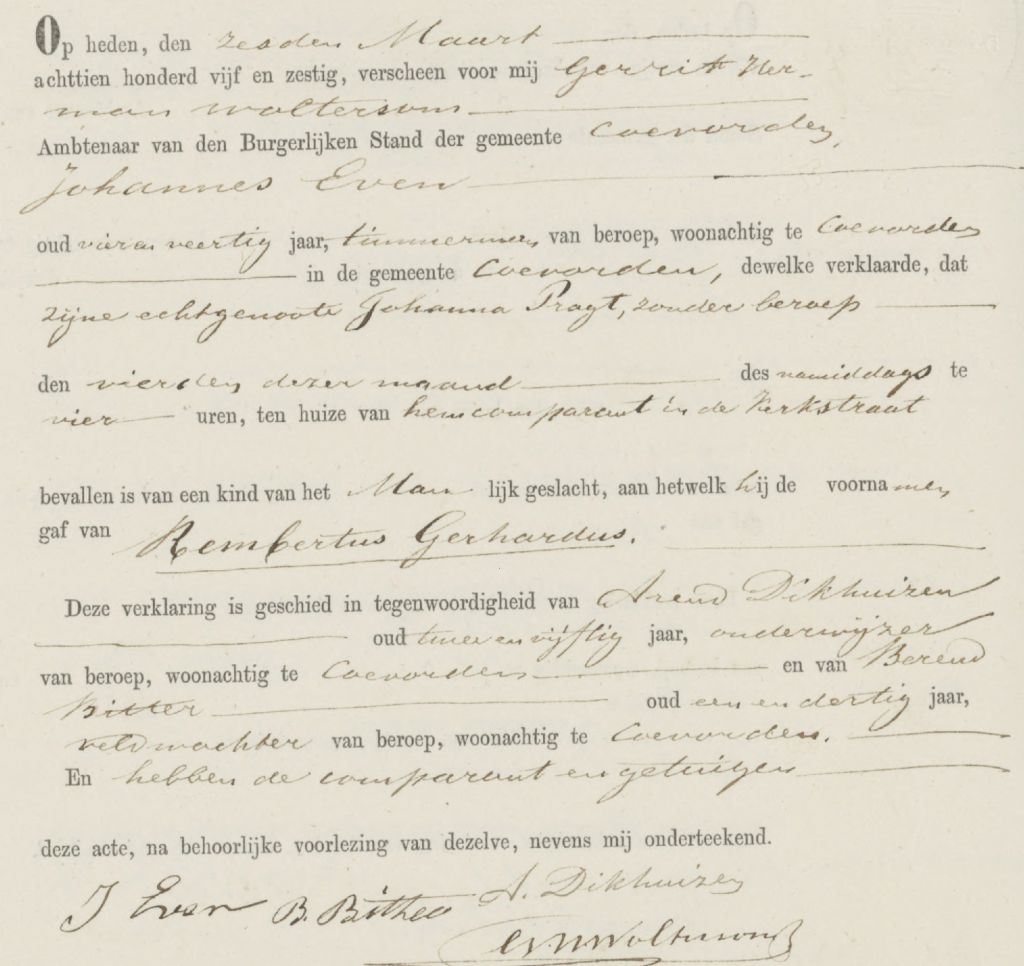 Op heden, den zesden Maart
achttien honderd vijf en zestig, verscheen voor mij Gerrit Her-
man Woltersom
Ambtenaar van den Burgerlijken Stand der gemeente Coevorden,
Johannes Even
oud vier en veertig jaar, timmerman, van beroep, woonachtig te Coevorden
in de gemeente Coevorden, dewelke verklaarde, dat
zijne echtgenoote Johanna Pragt, zonder beroep
den vierden dezer maand des namiddags te
vier uren, ten huize van hem comparant in de Kerkstraat
bevallen is van een kind van het Man lijk geslacht, aan hetwelk hij de voornamen
gaf van Rembertus Gerhardus.
Deze verklaring is geschied in tegenwoordigheid van Arend Dikhuizen
oud twee en vijftig jaar, onderwijzer
van beroep, woonachtig te Coevorden en van Berend
Bitter oud een en dertig jaar,
veldwachter van beroep, woonachtig te Coevorden.
En hebben de comparant en getuigen
deze acte, na behoorlijke voorlezing van dezelve, nevens mij onderteekend.
J Even B. Bitter A. Dikhuizen
GHWoltersom